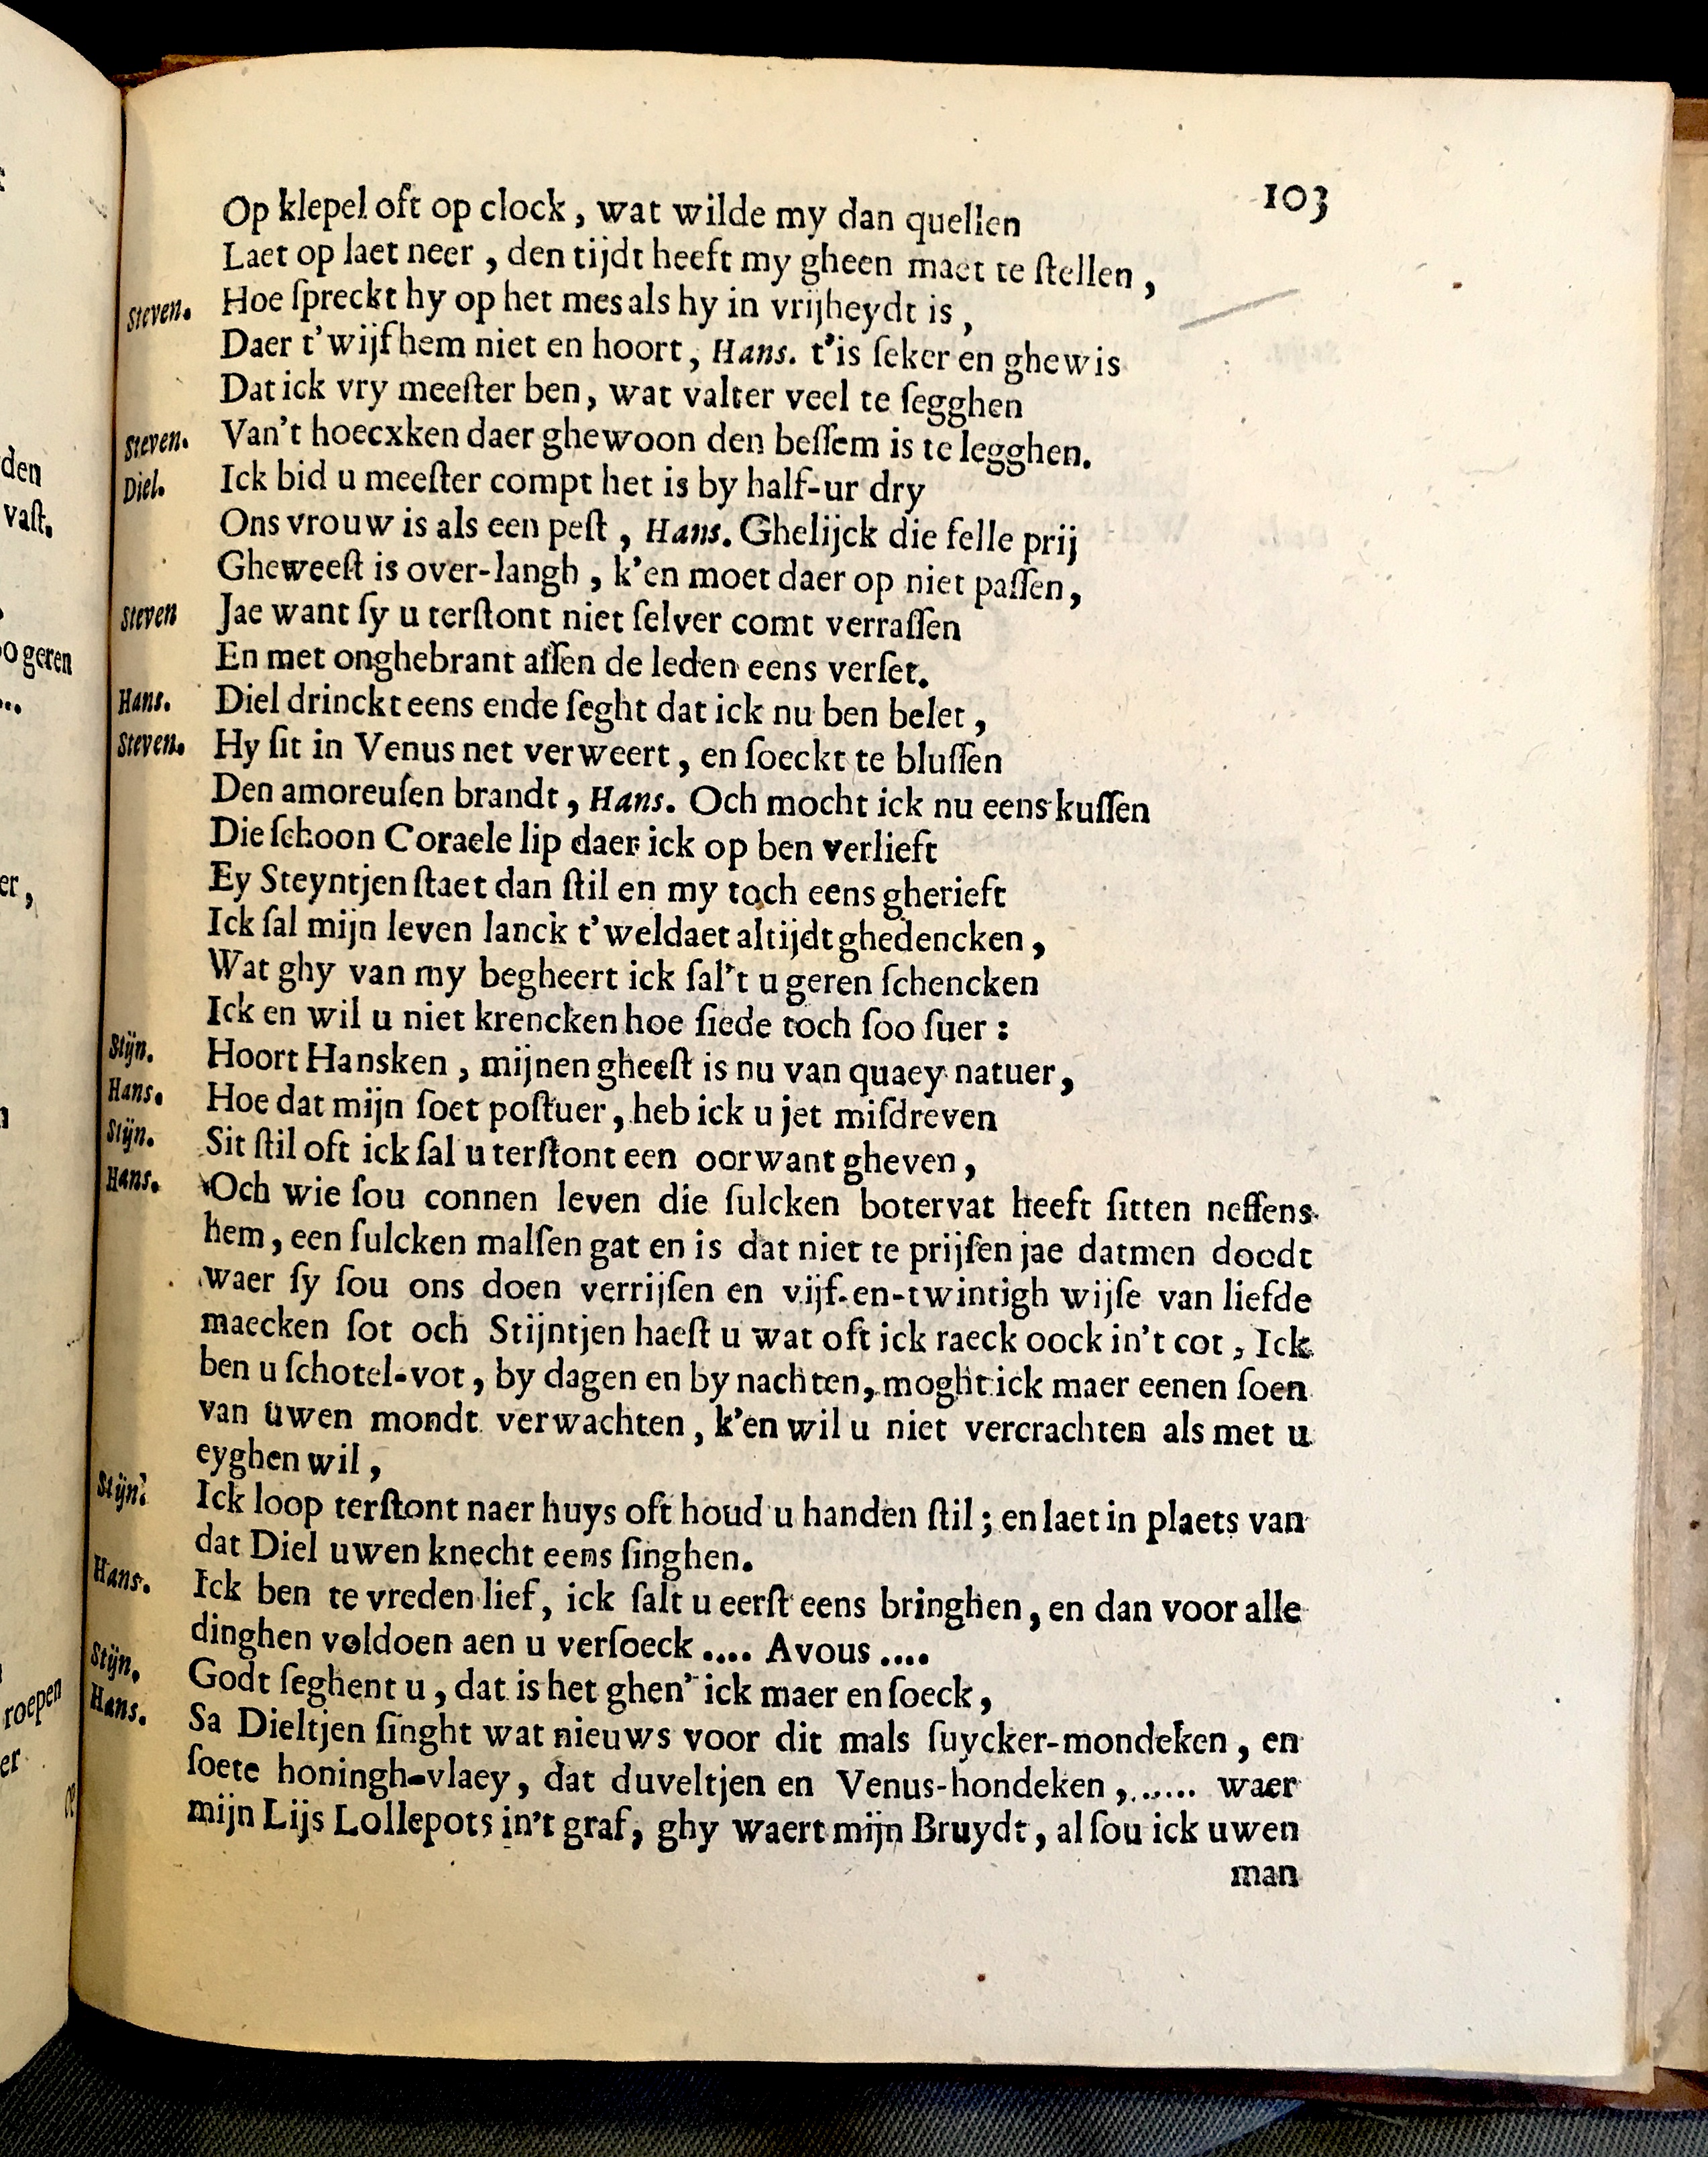 103
Op klepel oft op clock, wat wilde my dan quellen
Laet op laet neer, den tijdt heeft my gheen maet te ſtellen,
Steven. Hoe ſpreckt hy op het mes als hy in vrijheydt is,
Daer t'wijf hem niet en hoort, Hans. t'is ſeker en ghewis
Dat ick vry meeſter ben, wat valter veel te ſegghen
Steven. Van't hoecxken daer ghewoon den beſſem is te legghen.
Diel. Ick bid u meeſter compt het is by half-ur dry
Ons vrouw is als een peſt, Hans. Ghelijck die felle prij
Gheweeſt is over-langh, k'en moet daer op niet paſſen,
Steven Jae want ſy u terſtont niet ſelver comt verraſſen
En met onghebrant aſſen de leden eens verſet.
Hans. Diel drinckt eens ende ſeght dat ick nu ben belet,
Steven. Hy ſit in Venus net verweert, en ſoeckt te bluſſen
Den amoreuſen brandt, Hans. Och mocht ick nu eens kuſſen
Die ſchoon Coraele lip daer ick op ben verlieft
Ey Steyntjen ſtaet dan ſtil en my toch eens gherieft
Ick ſal mijn leven lanck t'weldaet altijdt ghedencken,
Wat ghy van my begheert ick ſal't u geren ſchencken
Ick en wil u niet krencken hoe ſiede toch ſoo ſuer:
Stijn. Hoort Hansken, mijnen gheeſt is nu van quaey natuer,
Hans. Hoe dat mijn ſoet poſtuer, heb ick u jet miſdreven
Stijn. Sit ſtil oft ick ſal u terſtont een oorwant gheven,
Hans. Och wie ſou connen leven die ſulcken botervat heeft ſitten neffens
hem, een ſulcken malſen gat en is dat niet te prijſen jae datmen doodt
waer ſy ſou ons doen verrijſen en vijf-en-twintigh wijſe van liefde
maecken ſot och Stijntjen haeſt u wat oft ick raeck oock in't cot, Ick
ben u ſchotel-vot, by dagen en by nachten, moght ick maer eenen ſoen
van uwen mondt verwachten, k'en wil u niet vercrachten als met u
eyghen wil,
Stijn. Ick loop terſtont naer huys oft houd u handen ſtil; en laet in plaets van
dat Diel uwen knecht eens ſinghen.
Hans. Ick ben te vreden lief, ick ſalt u eerſt eens bringhen, en dan voor alle
dinghen voldoen aen u verſoeck .... Avous ....
Stijn. Godt ſeghent u, dat is het ghen' ick maer en ſoeck,
Hans. Sa Dieltjen ſinght wat nieuws voor dit mals ſuycker-mondeken, en
ſoete honingh-vlaey, dat duveltjen en Venus-hondeken, ...... waer
mijn Lijs Lollepots in't graf, ghy waert mijn Bruydt, al ſou ick uwen
man
den
vaſt.
geren
...
er,
roepen
er